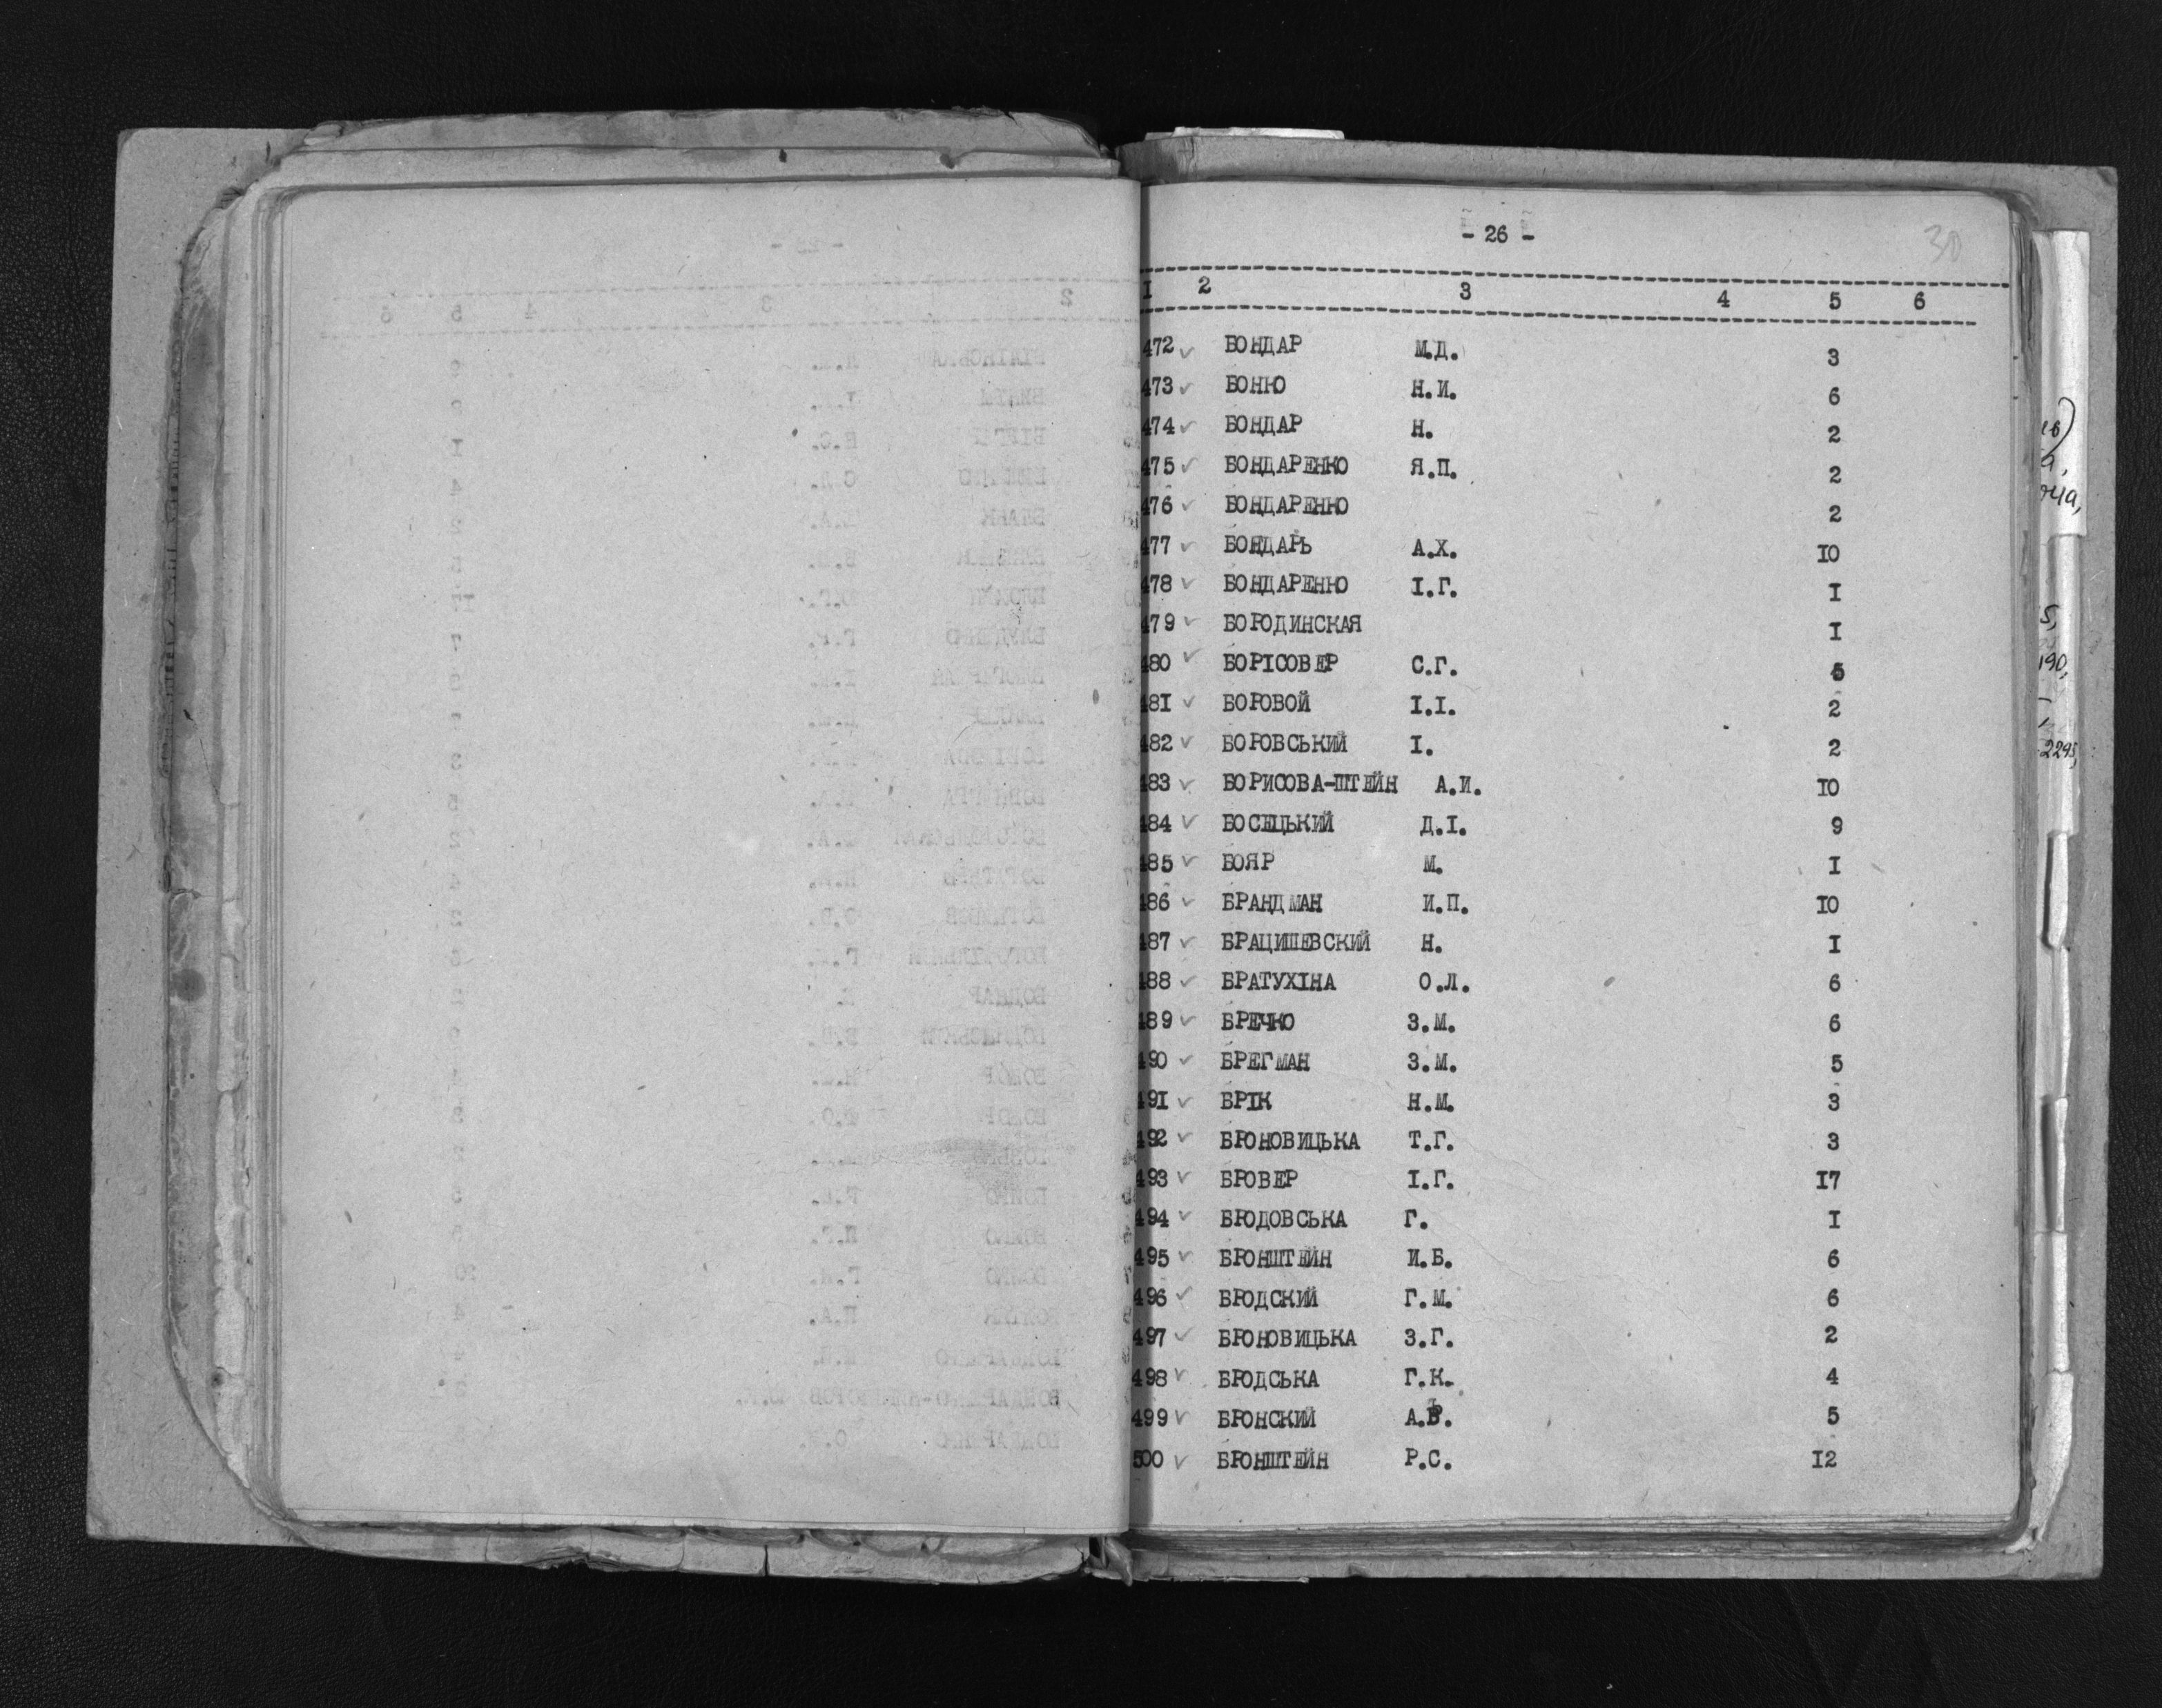 - 26 -
30
I 2 3 4 5 6
472 БОНДАР М.Д. 3
473 БОНЮ Н.И. 6
474 БОНДАР Н. 2
475 БОНДАРЕНКО Я.П. 2
476 БОНДАРЕНКО 2
477 БОНДАРЬ А.Х. IO
478 БОНДАРЕНКО І.Г. I
479 БОРОДИНСКАЯ I
480 БОРІСОВЕР С.Г. 5
481 БОРОВОЙ І.І. 2
482 БОРОВСЬКИЙ І. 2
483 БОРИСОВА-ШТЕЙН А.И. IO
484 БОСЕЦЬКИЙ Д.І. 9
485 БОЯР М. I
486 БРАНДМАН И.П. IO
487 БРАЦИШЕВСКИЙ Н. I
488 БРАТУХІНА О.Л. 6
489 БРЕЧКО З.М. 6
490 БРЕГМАН З.М. 5
491 БРІК Н.М. 3
492 БРОНОВИЦЬКА Т.Г. 3
493 БРОВЕР І.Г. I7
494 БРОДОВСЬКА Г. I
495 БРОНШТЕЙН И.Б. 6
496 БРОДСКИЙ Г.М. 6
497 БРОНОВИЦЬКА З.Г. 2
498 БРОДСЬКА Г.К. 4
499 БРОНСКИЙ А. 5
500 БРОНШТЕЙН Р.С. I2
190,
2295,